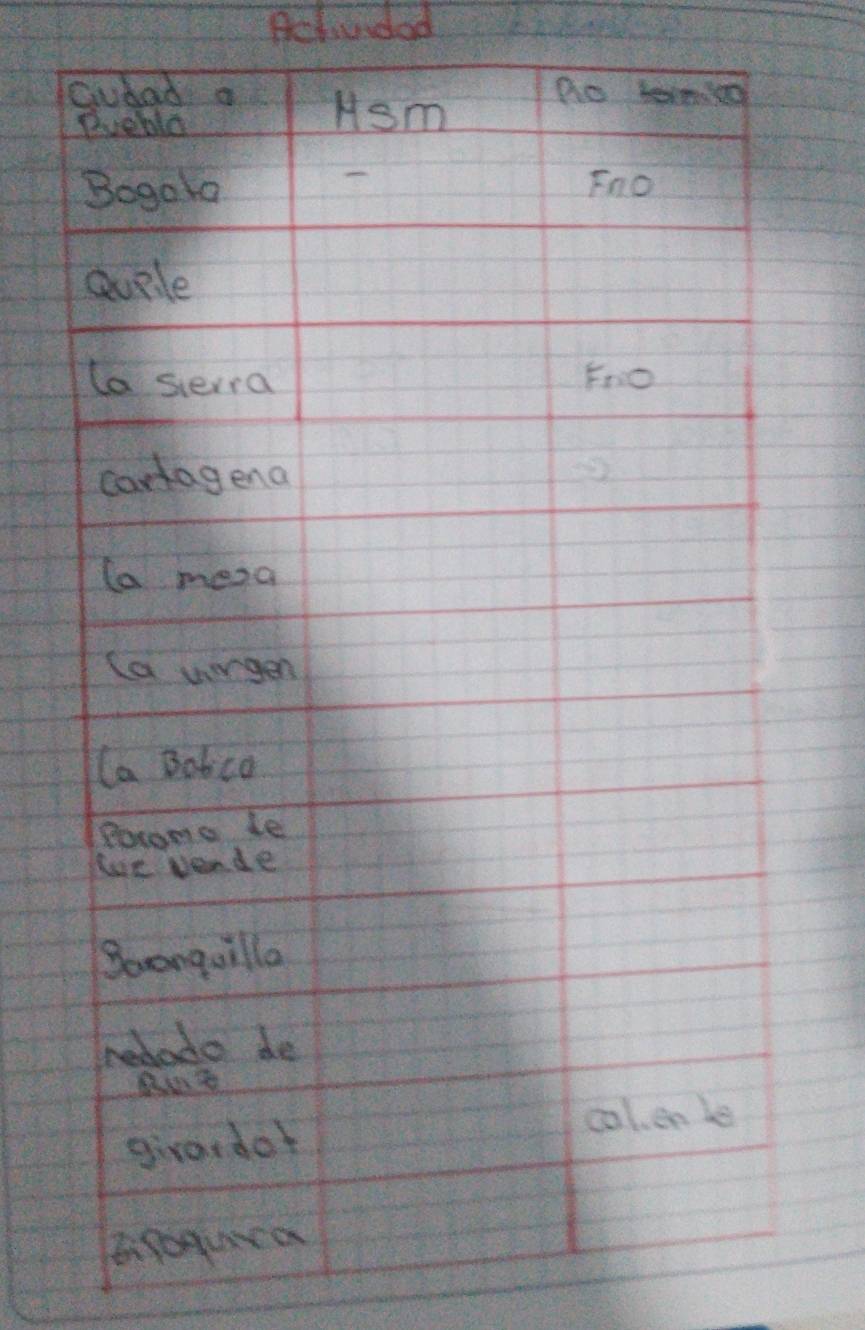 Actividad
Ciudad o
Pueblo
Msm
Piso termico
Bogota
-
Frio
Quple
La sierra
Frio
cartagena
La mesa
La virgen
La
Paramo de
verde
Baranquilla
nedado de
Ruiz
girardot
caliente
Zipaquira